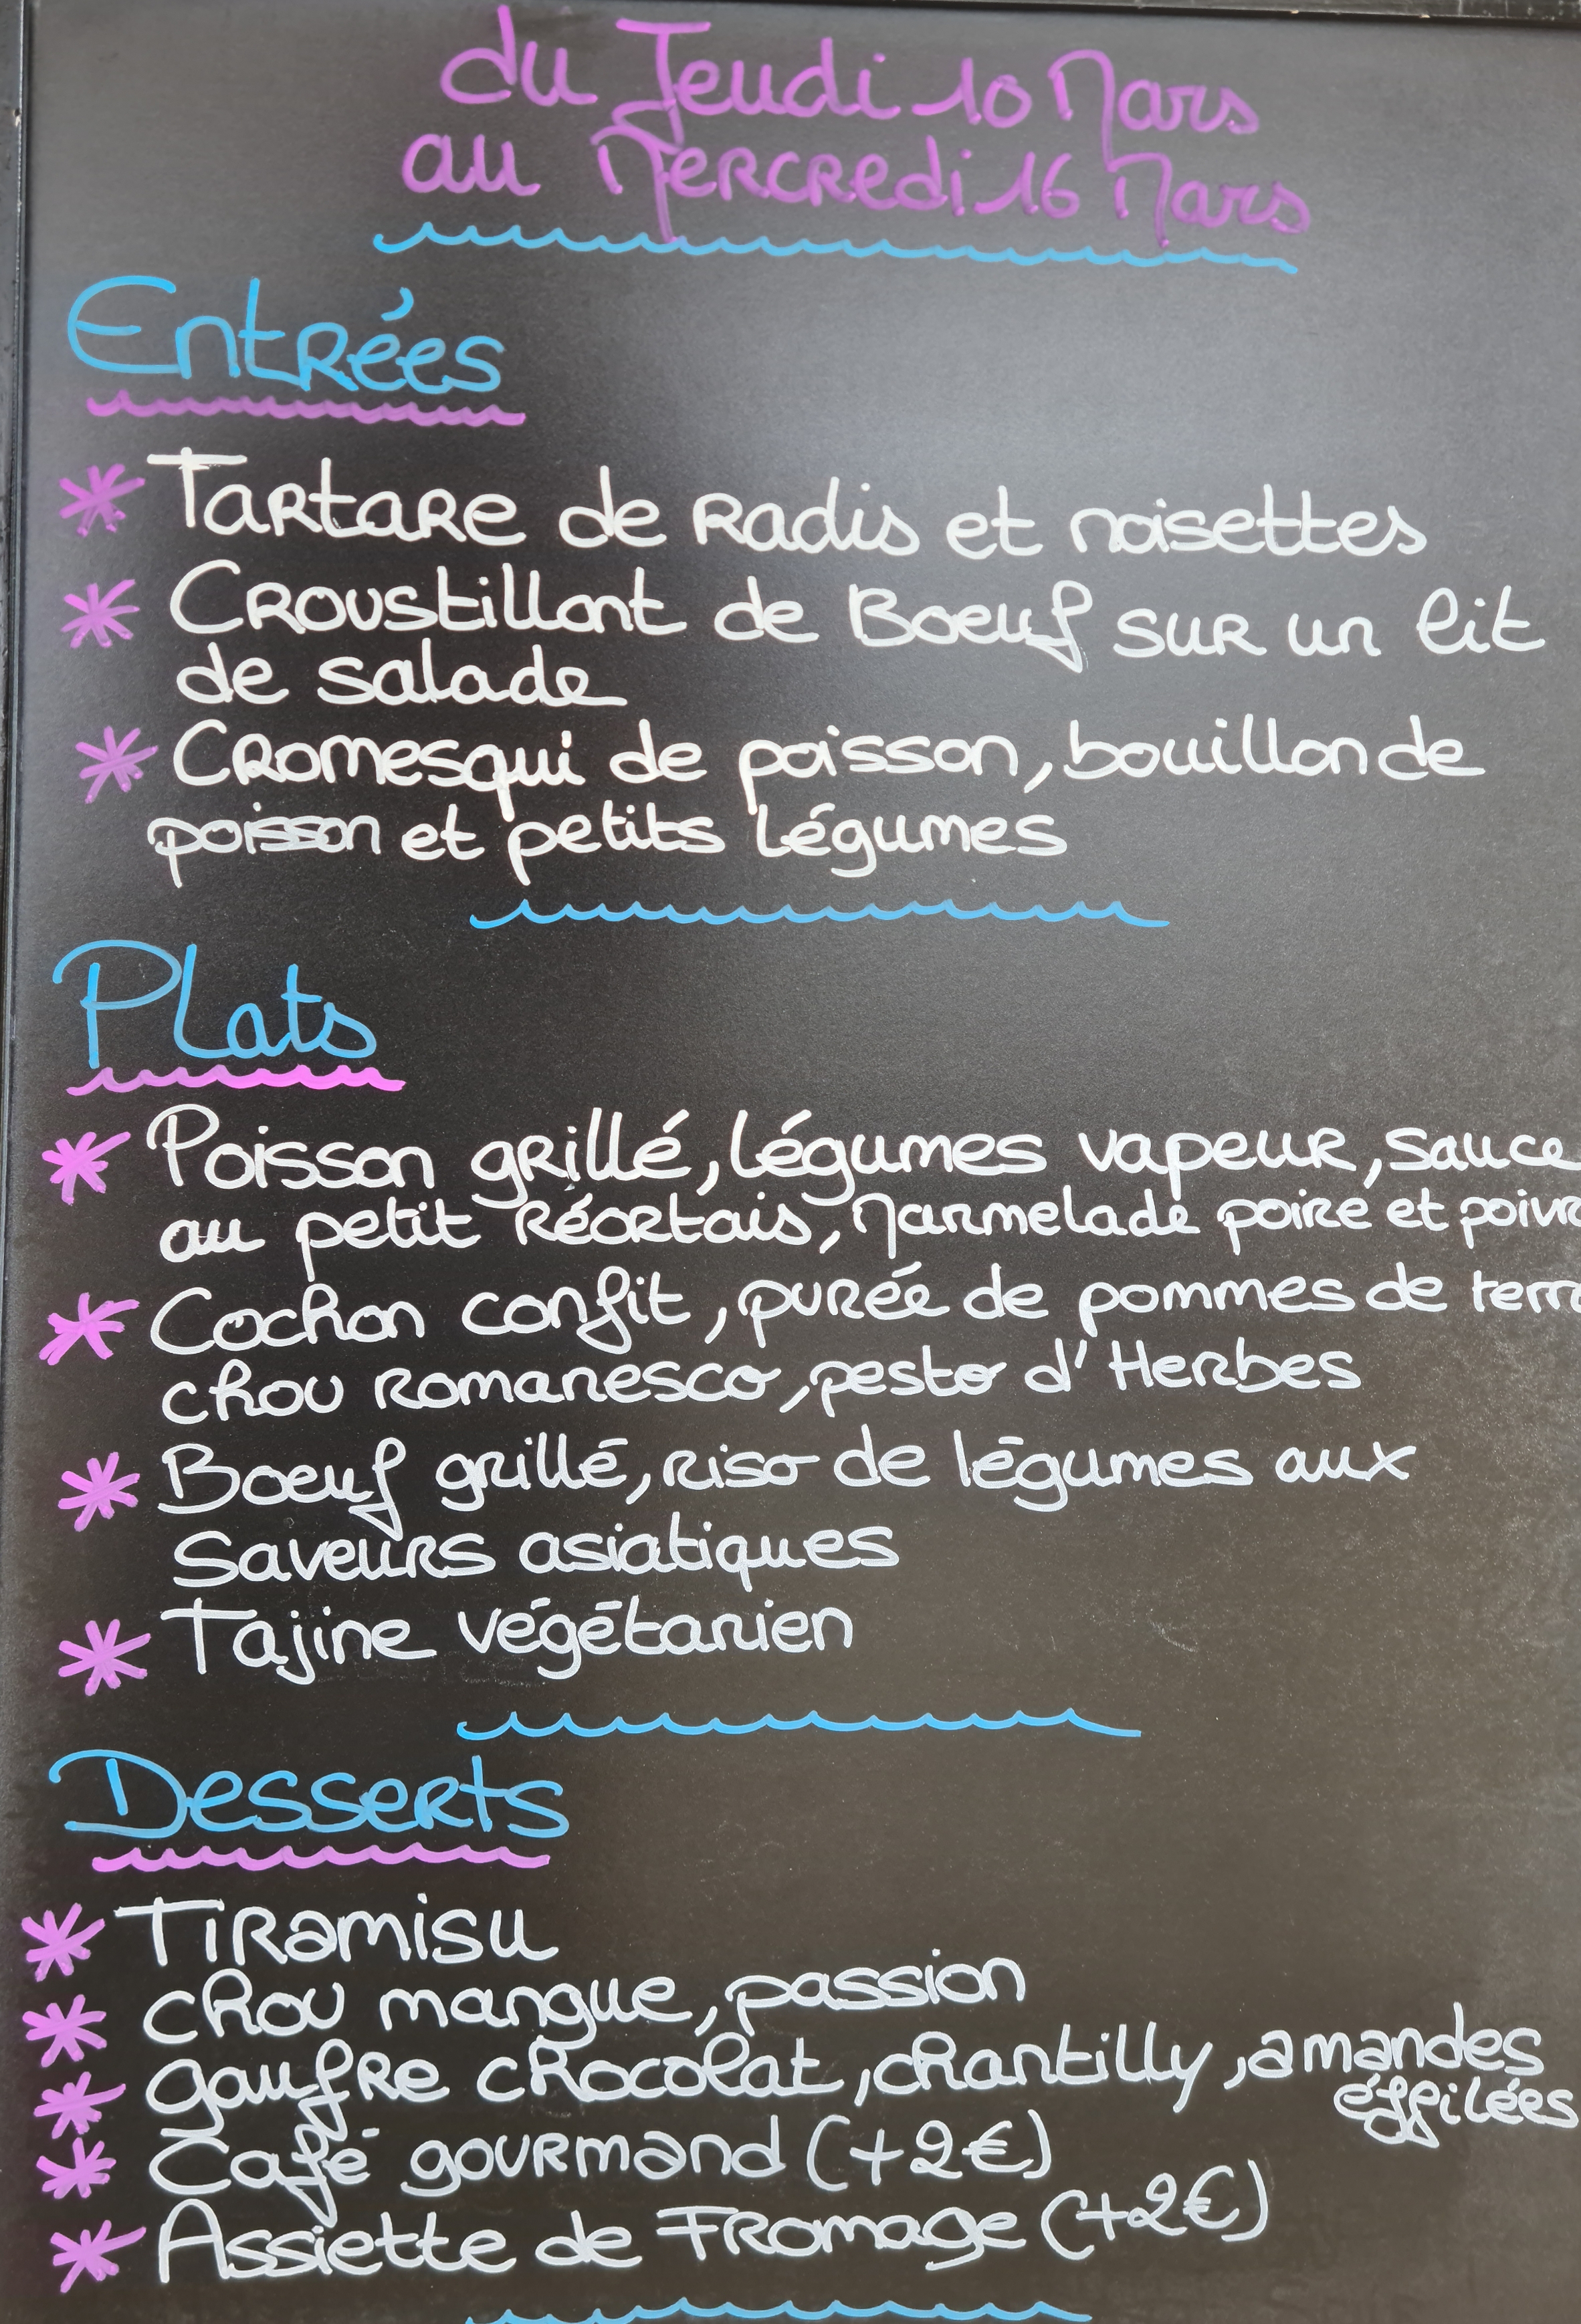 du Jeudi 10 Mars
au Mercredi 16 Mars
Entrées
* Tartare de Radis et noisettes
* Croustillant de Boeuf sur un lit
de salade
* Cromesqui de poisson, bouillon de
poisson et petits légumes
Plats
* Poisson grillé, légumes vapeur, sauce
au petit Réortais, Marmelade poire et poivr
* Cochon confit, purée de pommes de terr
chou romanesco, pesto d'Herbes
* Boeuf grillé, riso de légumes aux
Saveurs asiatiques
* Tajine végétarien
Desserts
* Tiramisu
* chou mangue, passion
* gaufre chocolat, chantilly, amandes
éffilées
* Café gourmand (+2€)
* Assiette de Fromage (+2€)